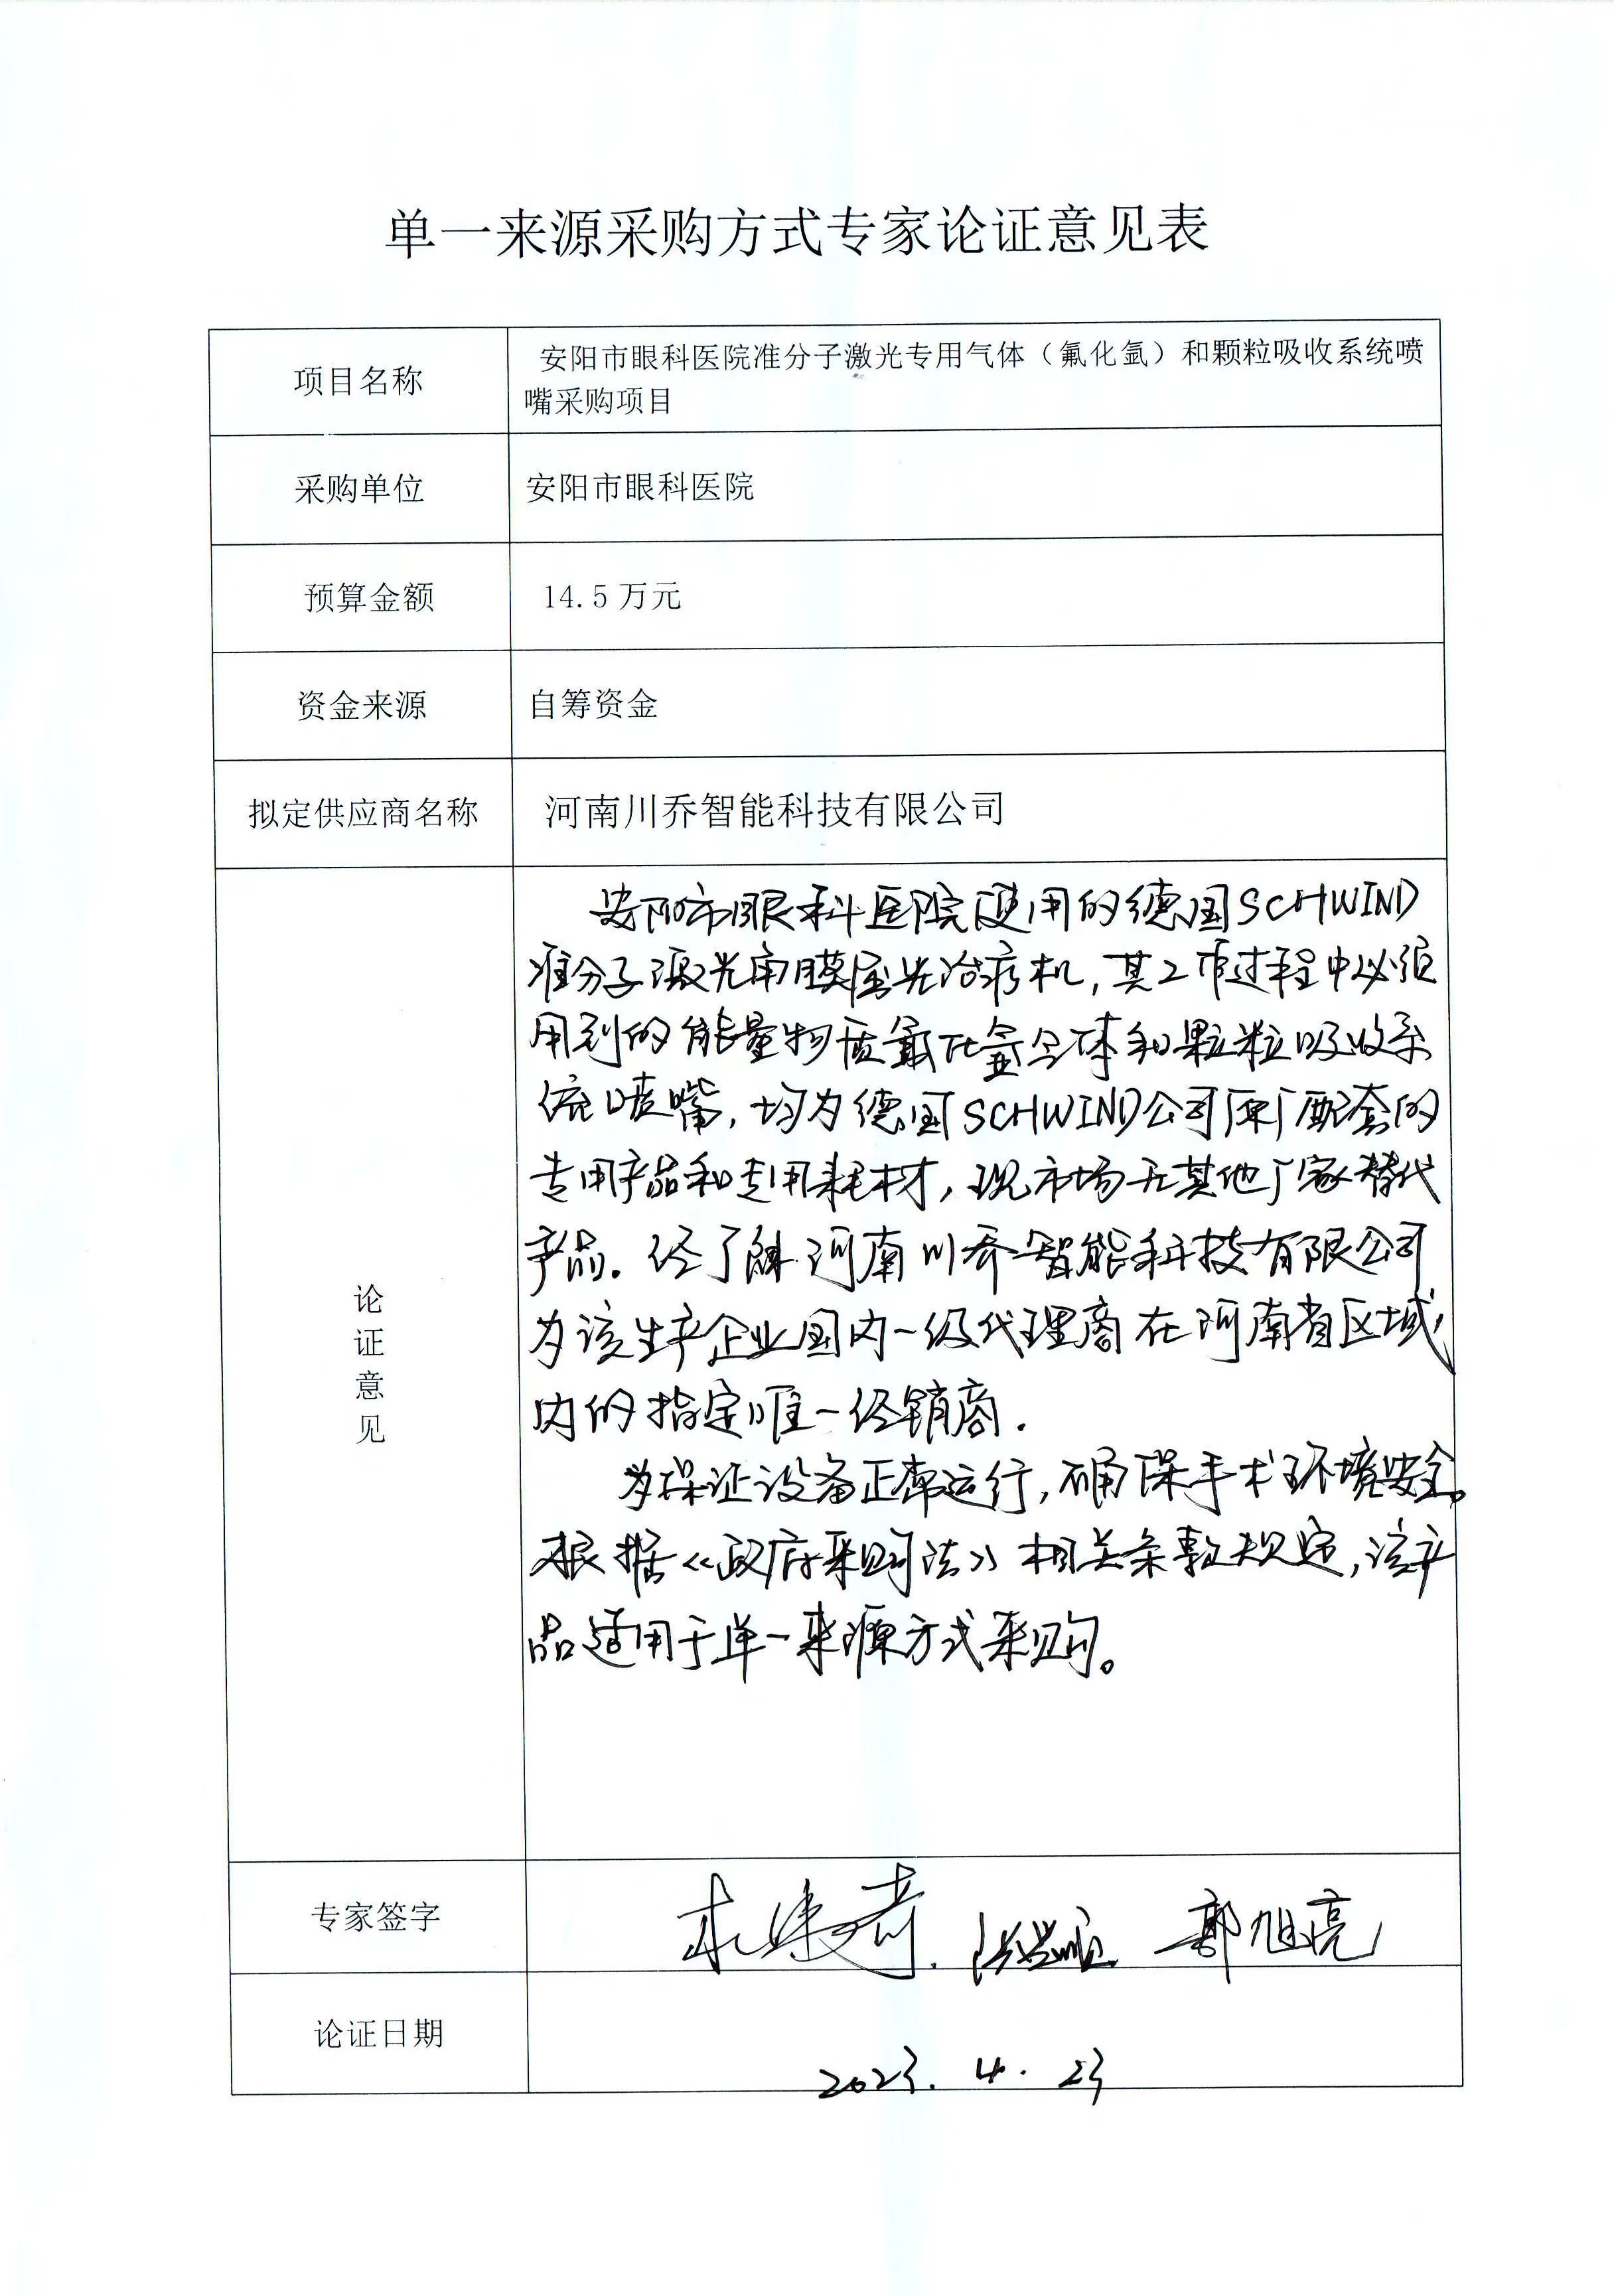 单一来源采购方式专家论证意见表
项目名称
安阳市眼科医院准分子激光专用气体（氟化氩）和颗粒吸收系统喷
嘴采购项目
采购单位
安阳市眼科医院
预算金额
14.5万元
资金来源
自筹资金
拟定供应商名称
河南川乔智能科技有限公司
论证意见
安阳市眼科医院使用的德国SCHWIND
准分子激光角膜屈光治疗机，其工作过程中必须
用到的能量物质氟化氩气体和颗粒吸收系
统喷嘴，均为德国SCHWIND公司原厂配套的
专用产品和专用耗材，现市场无其他厂家替代
产品。经了解河南川乔智能科技有限公司
为该生产企业国内一级代理商在河南省区域
内的指定唯一经销商.
为保证设备正常运行，确保手术环境安全。
根据《政府采购法》相关条款规定，该产
品适用于单一来源方式采购。
专家签字
郭旭亮
论证日期
2023.4.23